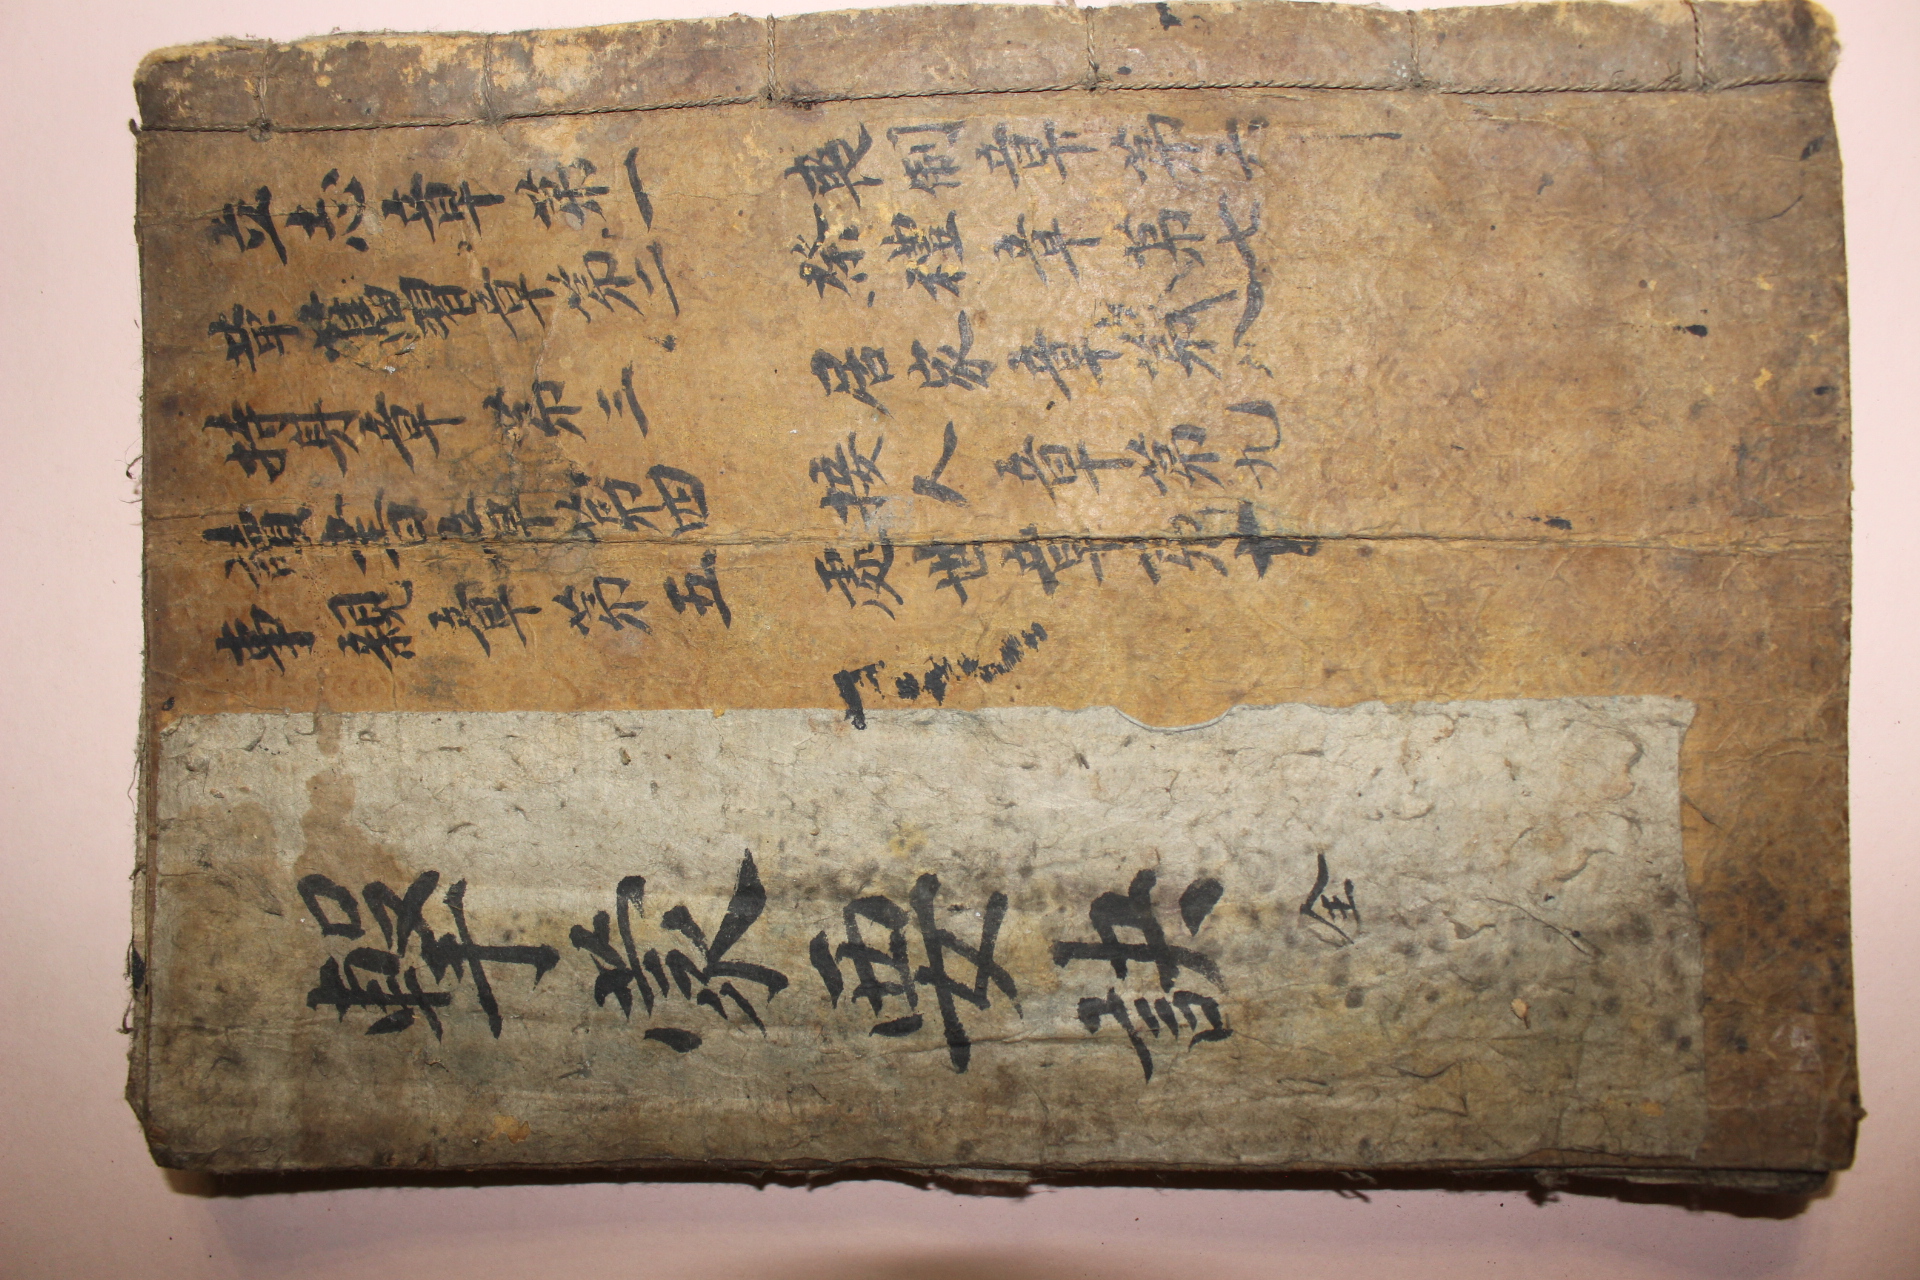 立志章第一
革舊習章第二
持身章第三
讀書章第四
事親章第五
喪制章第六
祭禮章第七
居家章第八
接人章第九
處世章第十
擊蒙要訣 全